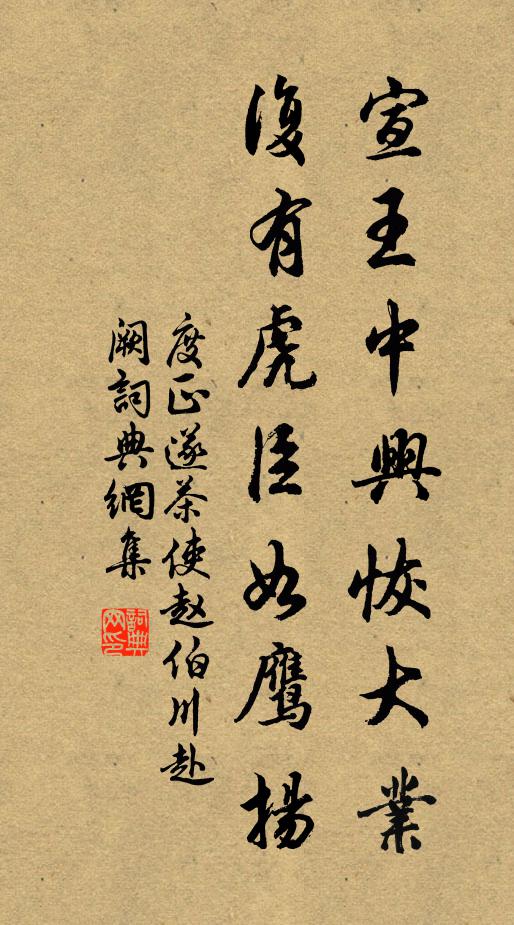 宣王中興恢大業
復有虎臣如鷹揚
度正送茶使赵伯川赴
阙詞典網集
詞典
网印